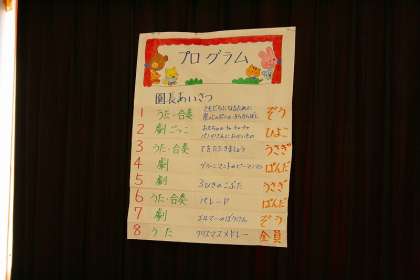 プログラム
園長あいさつ
1 うた・合奏 ぞう
2 劇ごっこ ひよこ
3 うた・合奏 てをたたきましょう うさぎ
4 劇 ぱんだ
5 劇 3びきのこぶた うさぎ
6 うた・合奏 パレード ぱんだ
7 劇 エルマーのぼうけん ぞう
8 うた クリスマスメドレー 全員